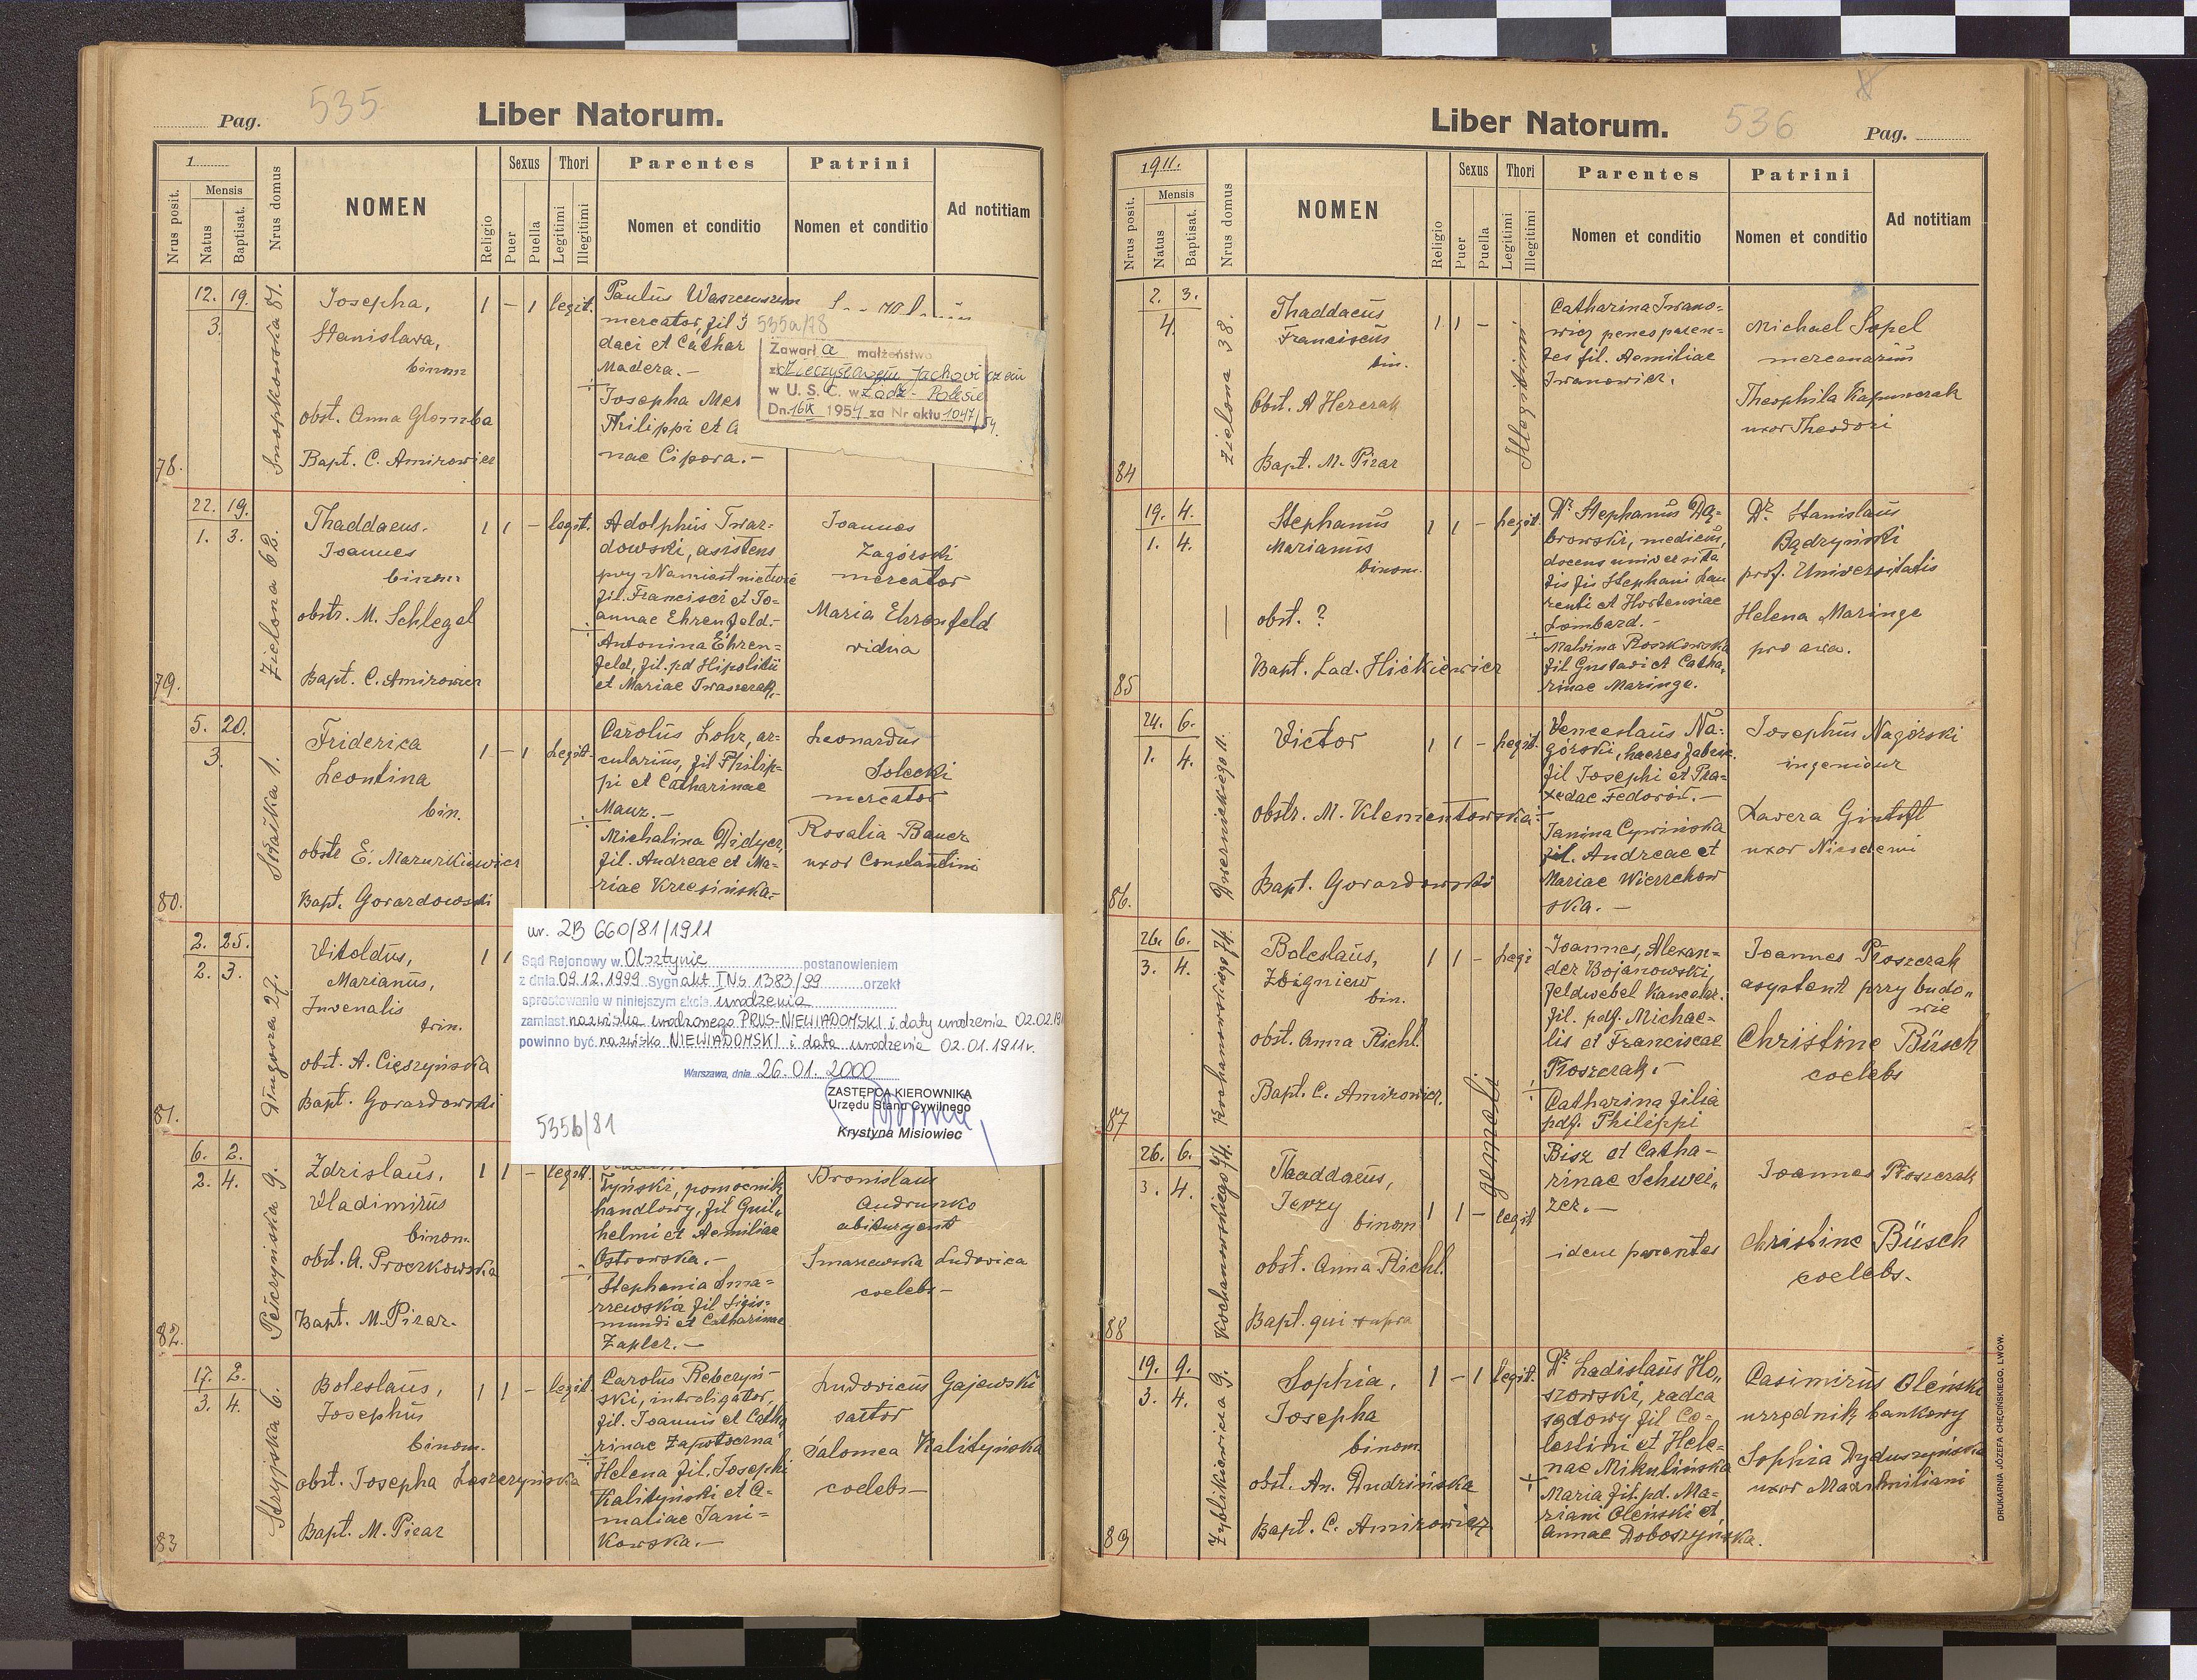 Pag. 535 Liber Natorum.
1
Nrus posit.
Mensis
Natus
Baptisat.
Nrus domus
NOMEN
Religio
Sexus
Puer
Puella
Thori
Legitimi
Illegitimi
Parentes
Nomen et conditio
Patrini
Nomen et conditio
Ad notitiam
78.
12. 19.
3.
Snopkowska 81.
Josepha,
Stanislava,
binom
obst. Anna Glomba
Bapt. C. Amirowicz
1 – 1 legit.
Paulus
mercator, fil
daci et Cathar
Madera.–
Josepha Mes
Philippi et A
nae Cipora.–
535a/78
Zawarł a małżeństwo
z Mieczysławem Jachowiczem
w U. S. C. w Łódź-Polesie
Dn. 16 IX 1954 za Nr aktu 1047/54.
79.
22. 19.
1. 3.
Zielona 62.
Thaddaeus.
Joannes
binom
obstr. M. Schlegel
Bapt. C. Amirowicz
1 1 – legit.
Adolphus Twar=
dowski, asistens
przy Namiestnictwie
fil. Francisci et Jo=
annae Ehrenfeld.–
Antonina Ehren=
feld, fil. pd Hipolitii
et Mariae Iwaszczak.–
Joannes
Zagórski
mercator
Maria Ehrenfeld
vidua
80.
5. 20.
3.
Sokalka 1.
Friderica
Leontina
bin.
obstr E. Mazurkiewicz
Bapt. Gorazdowski
1 – 1 Legit.
Carolus Lohr, ar=
cularius, fil Philip=
pi et Catharinae
Manz.–
Michalina Didycz,
fil. Andreae et Ma=
riae Krzesińska.–
Leonardus
Solecki
mercator
Rosalia Bauer
uxor Constantini
81.
2. 25.
2. 3.
Długosza 27.
Vitoldus,
Marianus,
Juvenalis
trin.
obst. A. Cieszyńska
Bapt. Gorazdowski
1 1
ur. 2B 660/81/1911
Sąd Rejonowy w Olsztynie postanowieniem
z dnia 09.12.1999 Sygn akt I Ns 1383/99 orzekł
sprostowanie w niniejszym akcie urodzenia
zamiast nazwiska urodzonego PRUS-NIEWIADOMSKI i daty urodzenia 02.02.19
powinno być nazwisko NIEWIADOMSKI i data urodzenia 02.01.1911r.
Warszawa, dnia 26.01.2000
ZASTĘPCA KIEROWNIKA
Urzędu Stanu Cywilnego
Krystyna Misiowiec
535b/81
82.
6. 2.
2. 4.
Pełczyńska 9.
Zdzislaus,
Vladimirus
binom.
obst. A. Proczkowska
Bapt. M. Pirar.
1 1 – legit.
tyński, pomocnik
handlowy, fil Guil=
helmi et Aemiliae
Ostrowska.–
Stephania Sma=
rzewska fil Sigis=
mundi et Catharinae
Zapler.–
Bronislaus
Andruszko
abiturient
Smarzewska Ludovica
coelebs–
83
17. 2.
3. 4.
Stryjska 6.
Boleslaus,
Josephus
binom.
obst. Josepha Leszczyńska
Bapt. M. Pirar
1 1 – legit.
Carolus Rebczyń–
ski, introligator,
fil. Joannis et Catha
rinae Zapotoczna
Helena fil. Josephi
Kalityński et A=
maliae Jani=
kowska.–
Ludovicus Gajewski
sartor
Salomea Kalityńska
coelebs–
Liber Natorum. 536 Pag.
1911.
Nrus posit.
Mensis
Natus
Baptisat.
Nrus domus
NOMEN
Religio
Sexus
Puer
Puella
Thori
Legitimi
Illegitimi
Parentes
Nomen et conditio
Patrini
Nomen et conditio
Ad notitiam
84
2. 3.
4.
Zielona 38.
Thaddaeus
Franciscus
bin.
Obst. A Herczak
Bapt. M. Pirar
1 1 –
Illegitimi
Catharina Iwano=
wicz penes paren=
tes fil. Aemiliae
Iwanowicz.
Michael Sopel
mercenarius
Theophila Kapuszczak
uxor Theodori
85
19. 4.
1. 4.
Stephanus
Marianus
binom.
obst. ?
Bapt. Lad. Hickiewicz
1 1 – Legit.
Dr Stephanus Dą=
browski, medicus,
docens universita
tis fis Stephani Lau
renti et Hortensiae
Lombard.–
Malvina Roszkowska
fil Gustavi et Catha=
rinae Maringe.
Dr. Stanislaus
Bądzyński
prof. Universitatis
Helena Maringe
pro avia.
86.
24. 6.
1. 4.
Dwernickiego 11.
Victor
obstr. M. Klementowska
Bapt. Gorazdowski
1 1 – Legit.
Venceslaus Na=
górski,
fil Josephi et Pra=
xedae Fedorów.–
Janina Cywińska
fil. Andreae et
Mariae Wierzchow
ska.–
Josephus Nagórski
ingenieur
Xavera Gintoft
uxor Nicodemi
87
26. 6.
3. 4.
Kochanowskiego 74.
Boleslaus,
Zbigniew
bin.
obst. Anna Richl.
Bapt. C. Amirowicz.
1 1 – Legi
gemelli
Joannes, Alexan=
der Bojanowski,
feldwebel Kancelar.
fil. pdf. Michae=
lis et Franciscae
Ploszczak.–
Catharina filia
pdf. Philippi
Joannes Ploszczak
asystent przy budo"
wie
Christine Büsch
coelebs
88
26. 6.
3. 4.
Kochanowskiego 74.
Thaddaeus,
Jerzy
binom
obst. Anna Richl.
Bapt. qui supra
1 1 – legit
Bisz et Catha–
rinae Schwei"
zer.–
idem parentes
Joannes Ploszczak
Christine Büsch
coelebs.
89
19. 9.
3. 4.
Zyblikiewicza 9.
Sophia,
Josepha
binom
obst. An. Dudzińska
Bapt. C. Amirowicz
1 – 1 legit.
Dr Ladislaus Ho"
szowski, radca
sądowy fil Co=
lestini et Hele=
nae Mikulińska
Maria fil. pd. Ma=
riani Oleński et
Annae Doboszyńska.
Casimirus Oleński
urzędnik bankowy
Sophia Dyduszyńska
uxor Maximiliani
DRUKARNIA JÓZEFA CHĘCIŃSKIEGO. LWÓW.